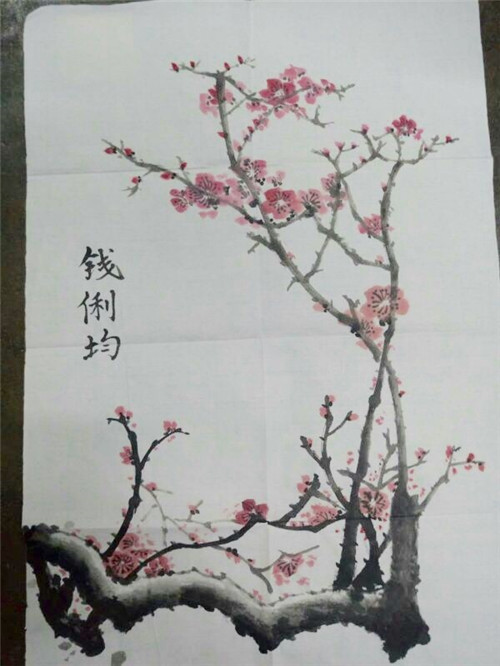 钱俐均